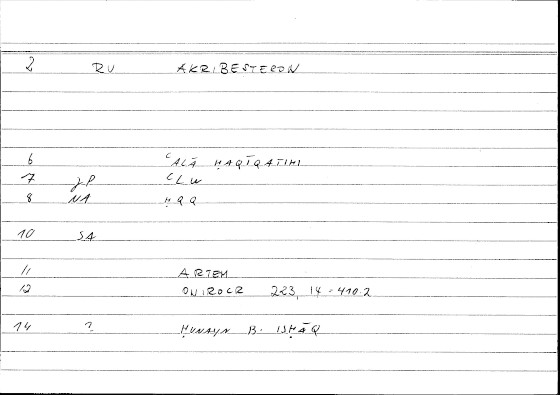 2 RU AKRIBESTERON
6 ʿALĀ ḤAQĪQATIHI
7 JP ʿLW
8 NA ḤQQ
10 SA
11 ARTEM
12 ONIROCR 223, 14 - 410.2
14 ? ḤUNAYN B. ISḤĀQ